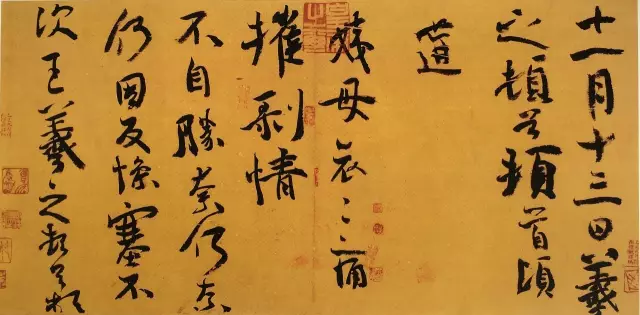 十一月十三日羲
之頓首頓首頃
遘
姨母哀〻痛
摧剝情
不自勝奈何奈
何因反慘塞不
次王羲之頓首頓